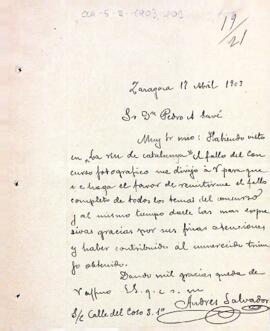 19/21
Zaragoza 17 Abril 1903
Sr Dn Pedro A Savé
Muy Sr mio: Habiendo visto
en "La veu de catalunya" el fallo del con
curso fotografico me dirijo à V para que
se haga el favor de remitirme el fallo
completo de todos los temas del concurso
y al mismo tiempo darle las mas expre
sivas gracias por sus finas atenciones
y haber contribuido al inmerecido triun
fo obtenido.
Dando mil gracias queda de
V affmo S.S. q. s. m
Andres Salvador
S/c Calle del Coso 5. 1º